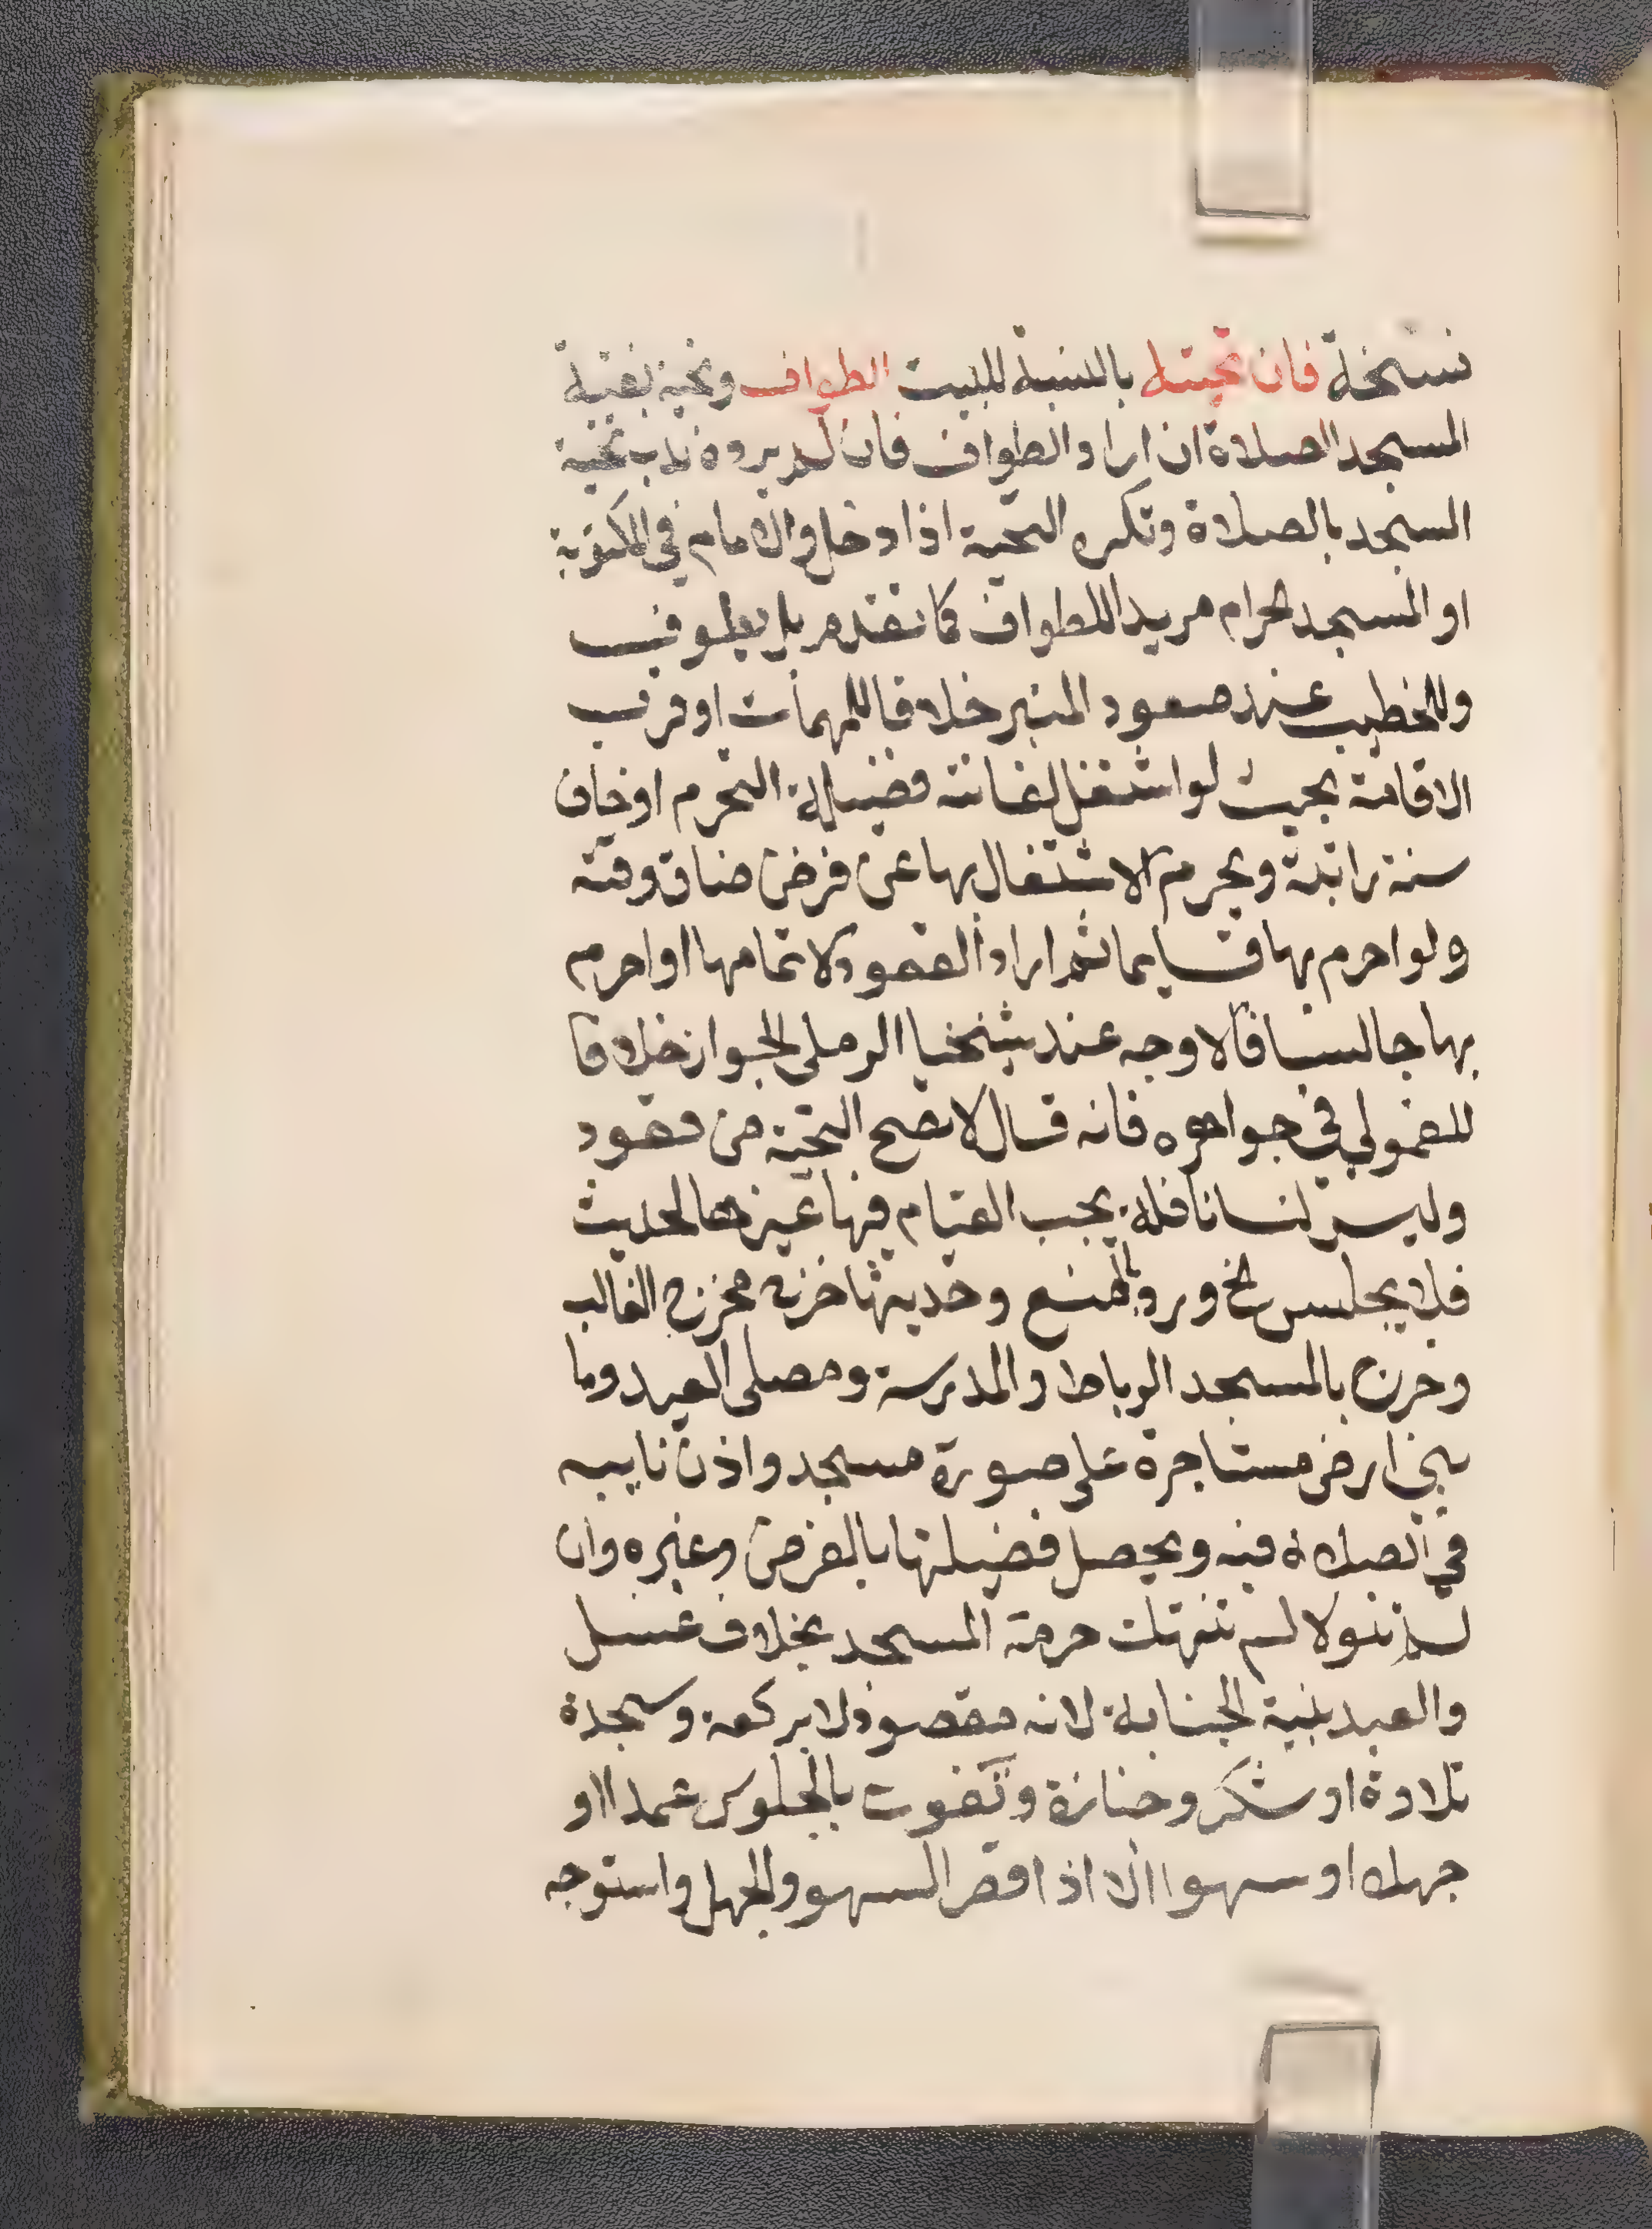 نسخة فان تحيته بالنسبة للبيت الطواف وتحية بقية
المسجد الصلاة ان اراد الطواف فان لم يرده ندب تحية
المسجد بالصلاة وتكره التحية اذا دخل والامام في المكتوبة
او المسجد الحرام مريدا للطواف كما تقدم بل يطوف
وللخطيب عند صعود المنبر خلافا للمهمات او قرب
الاقامة بحيث لو اشتغل لفاتته فضيلة التحرم او خاف
سنة راتبة ويحرم الاشتغال بها عن فرض ضاق وقته
ولو احرم بها قايما ثم اراد القعود لاتمامها او احرم
بها جالسا فالاوجه عند شيخنا الرملي الجواز خلافا
للقمولي في جواهره فانه قال لا تصح التحية من قعود
وليس لنا نافلة يجب القيام فيها غيرها لحديث
فلا يجلس الخ ورد بالمنع وحديثها خرج مخرج الغالب
وخرج بالمسجد الرباط والمدرسة ومصلى العيد وما
بني ارض مستاجرة على صورة مسجد واذن نايبه
في الصلاة فيه ويحصل فضيلتها بالفرض وغيره وان
لم تنو لا لم تنتهك حرمة المسجد بخلاف غسل
والعيد بنية الجنابة لانه مقصود لا بركعة وسجدة
تلاوة او شكر وجنازة وتفوت بالجلوس عمدا او
جهلا او سهوا الا اذا قصر السهو والجهل واستوجه